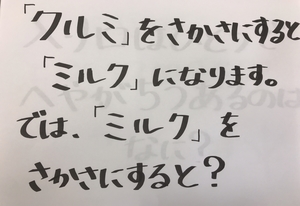 「クルミ」をさかさにすると
「ミルク」になります。
では、「ミルク」を
さかさにすると？